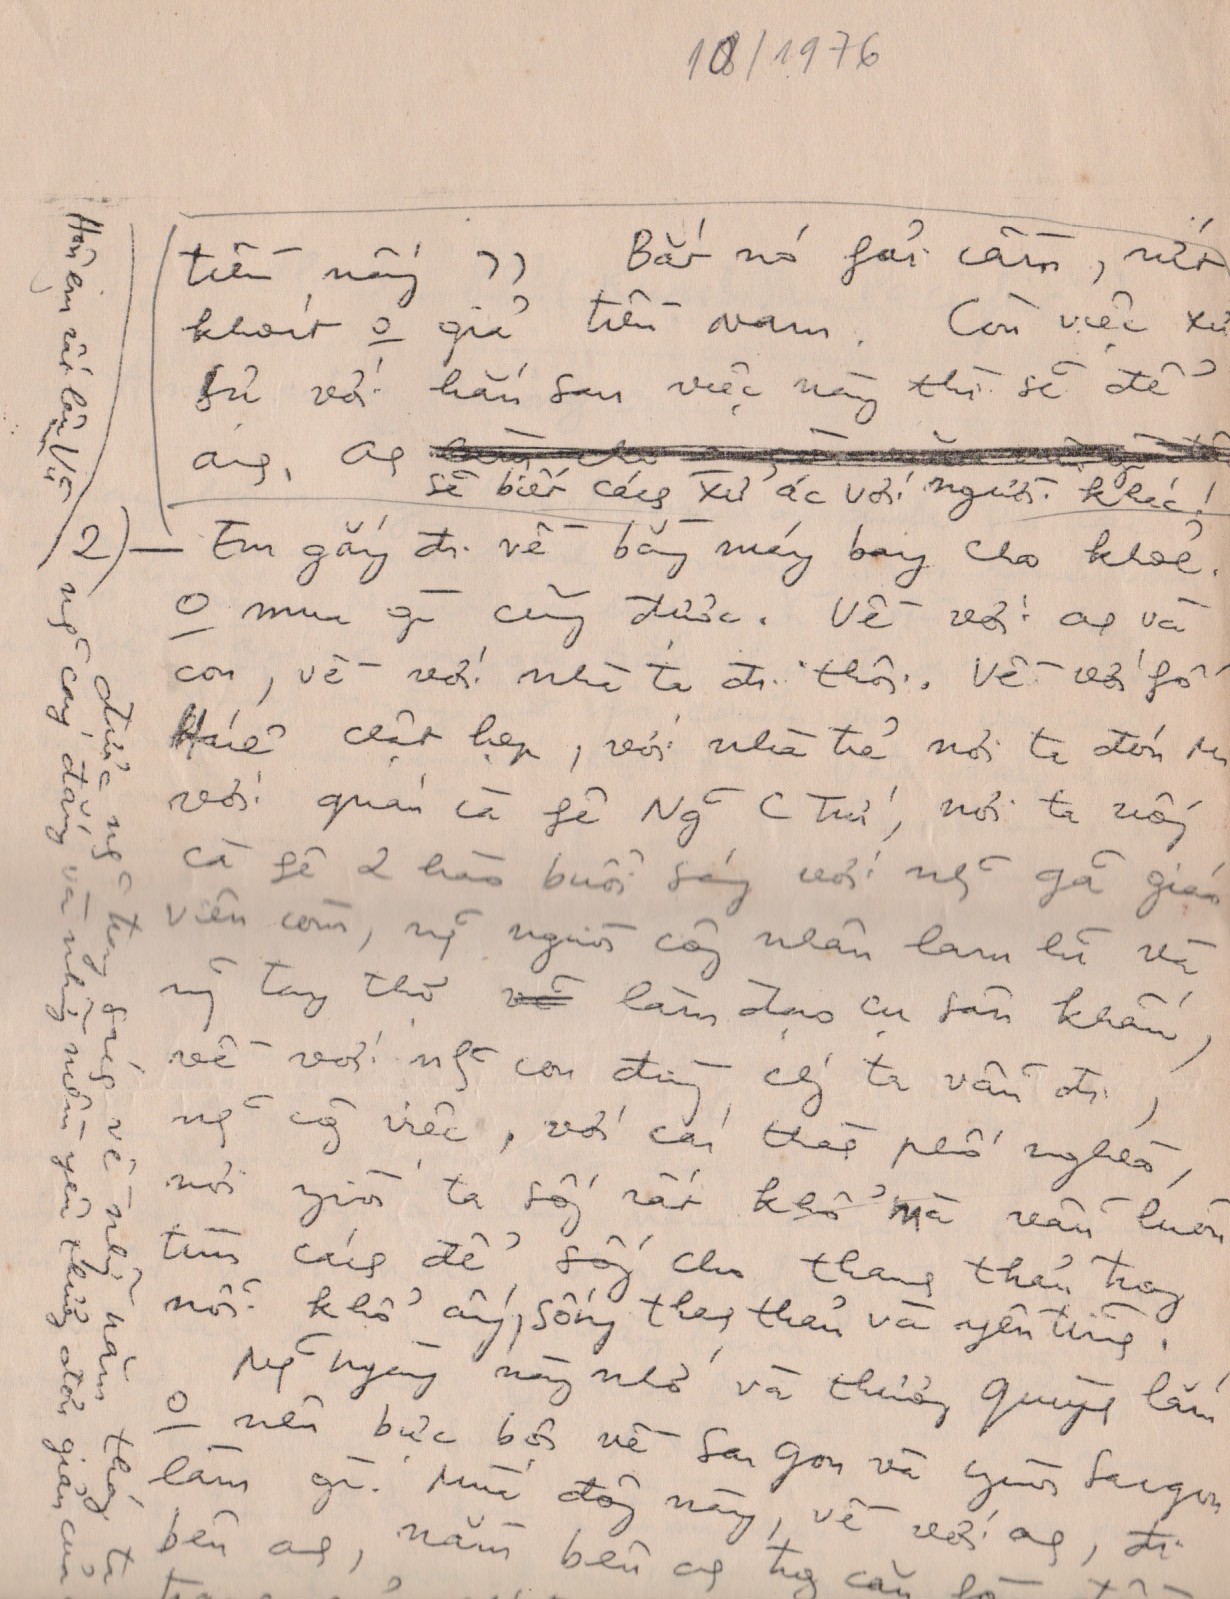 10/1976
tiền nầy ?? Bắt nó gởi cầm, nứt
khoát o giả tiền nam. Còn việc xử
sự với hắn sau việc này thì sẽ để
ag. Ag
sẽ biết cách xử ác với người khác!
2) — Em gắng đi về bằng máy bay cho khoẻ.
o mua gì cũng được. Về với ag và
con, về với nhà ta đi thôi. Về với gố
Huế chật hẹp, với nhà trẻ nơi ta đón
với quán cà fê Ngã C Trú, nơi ta uống
cà fê 2 hào buổi sáng với ng~ gã giáo
viên còm, ng~ người công nhân lam lũ và
ng~ tay thợ làm đạo cụ sân khấu,
về với ng~ con đường cũ ta vẫn đi,
ng~ cg việc, với cái thành phố nghèo,
nơi người ta sống rất khổ mà vẫn luôn
tìm cách để sống cho thanh thản trong
nỗi khổ ấy, sống thanh thản và yên tĩnh.
Ng~ ngày này nhớ và thương Quỳnh lắm
o nên bực bội về Saigon và người Saigon
làm gì. Mùa đông này, về với ag, đi
bên ag, nằm bên ag trg căn
Hôn em rất lâu Vũ
đứng ng~ trang giấy về những năm tháng ta
ng~ cay đắng và những niềm yên thương đơn giản của